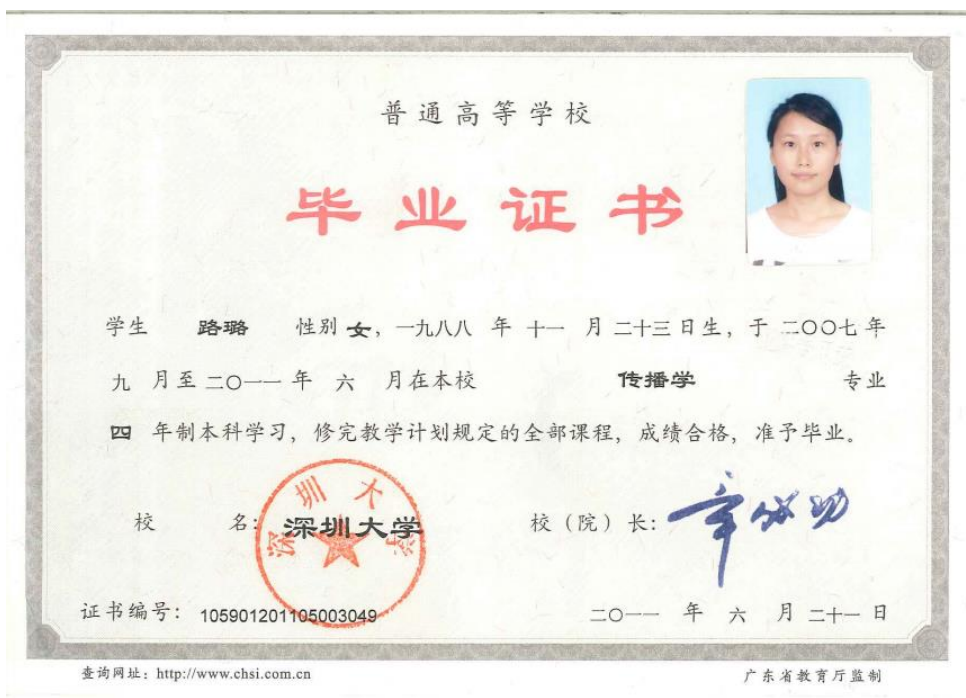 普通高等学校
毕业证书
学生 路璐 性别 女，一九八八 年 十一 月 二十三 日生，于 二〇〇七 年
九 月至 二〇一一 年 六 月在本校 传播学 专业
四 年制本科学习，修完教学计划规定的全部课程，成绩合格，准予毕业。
校 名：深圳大学
深圳大学
校（院）长：章必功
证书编号：105901201105003049
二〇一一 年 六 月 二十一 日
查询网址：http://www.chsi.com.cn
广东省教育厅监制